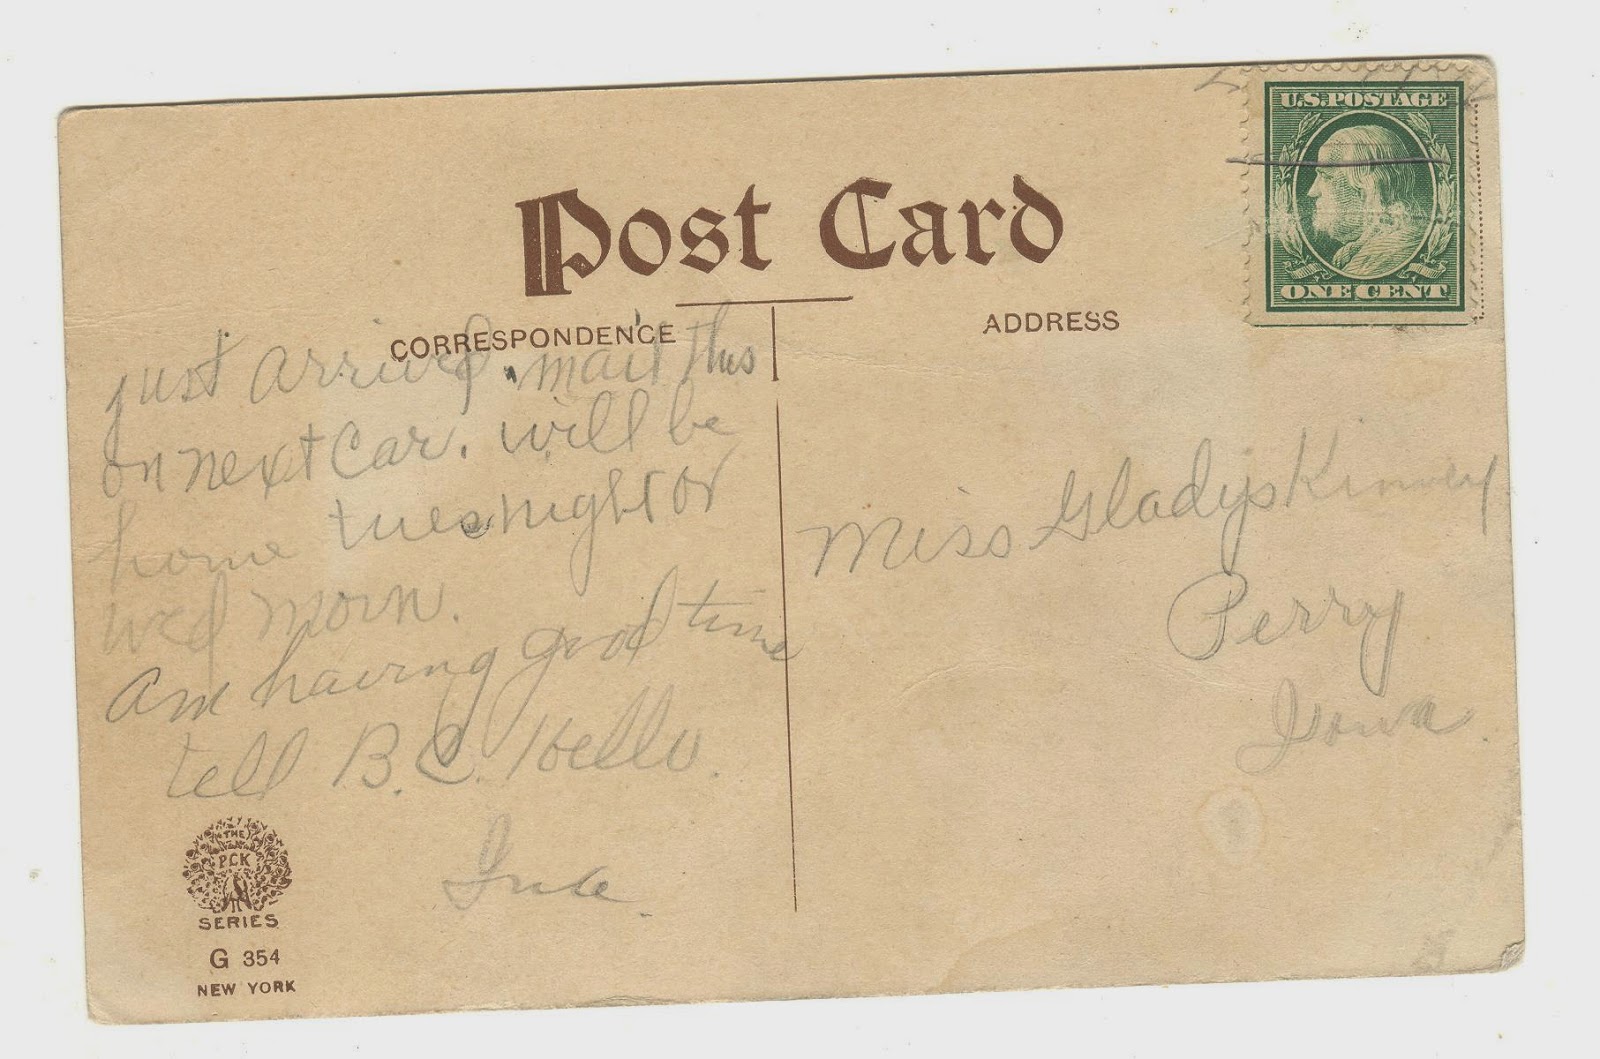 U.S. POSTAGE
ONE CENT
Post Card
CORRESPONDENCE
ADDRESS
just arrived. mail this
on next Car. will be
home tues night or
wed morn.
am having good time
tell B.C. Hello.
Miss Gladys Kinney
Perry
Iowa.
THE
PCK
SERIES
G 354
NEW YORK